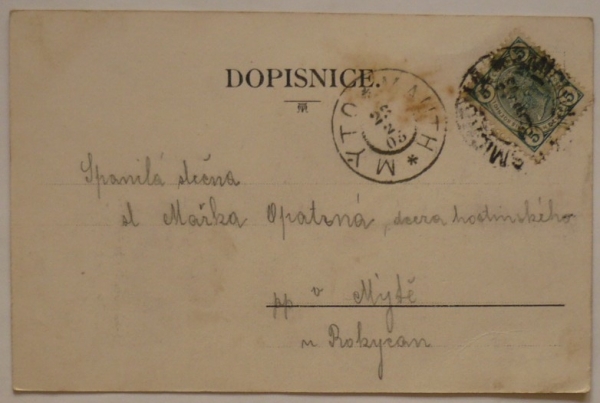 DOPISNICE.
MÝTO * MAUTH *
23
2
05
Spanilá slečna
sl Mařka Opatrná, dcera hodinského
pp v Mýtě
u Rokycan